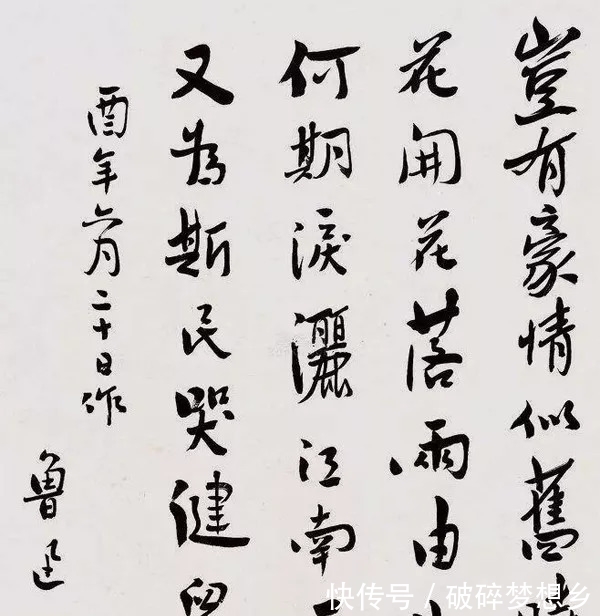 豈有豪情似舊
花開花落兩由
何期淚灑江南
又為斯民哭健
酉年六月二十日作
魯迅
快传号 / 破碎梦想乡